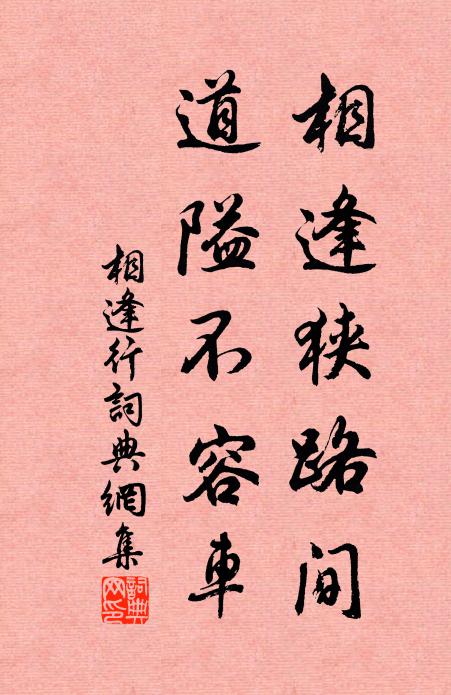 相逢狹路間
道隘不容車
相逢行詞典網集
詞典网印